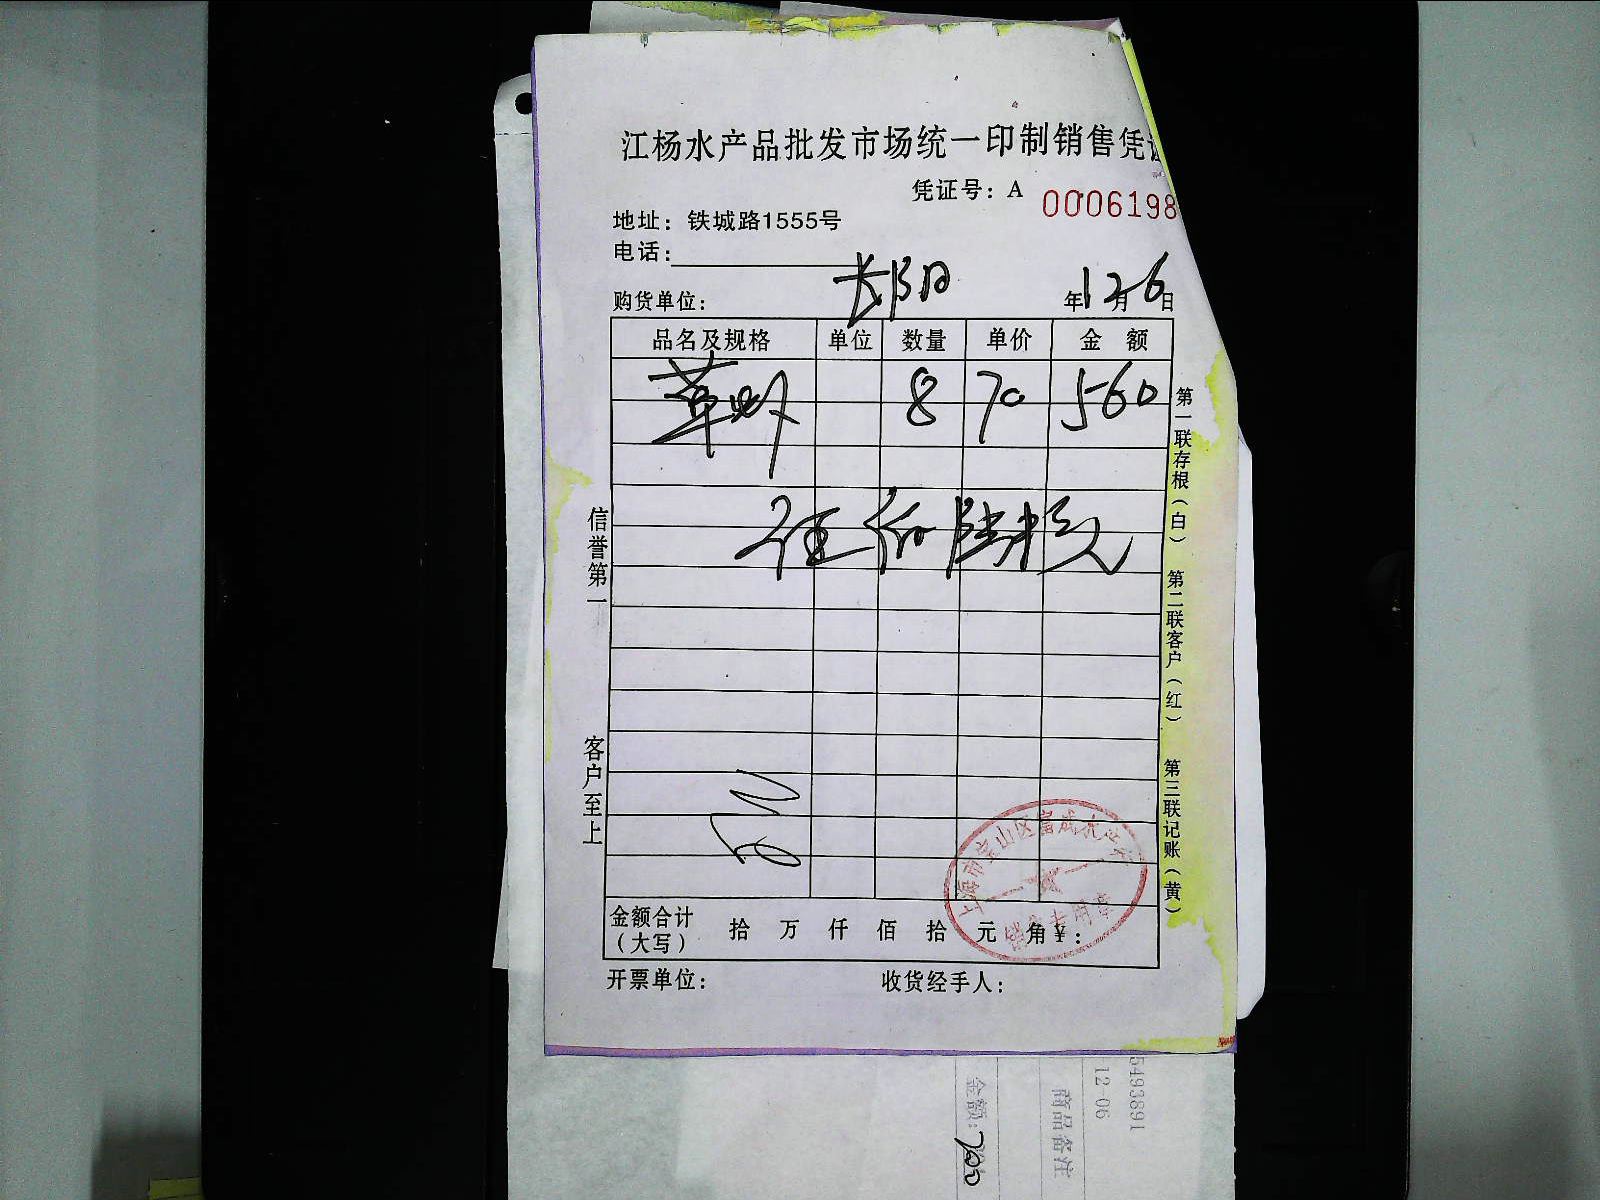 江杨水产品批发市场统一印制销售凭
凭证号：A 0006198
地址：铁城路1555号
电话：
购货单位： 长阳 年12月6日
品名及规格 单位 数量 单价 金 额
草虾 8 70 560
伍佰陆拾元
信誉第一
客户至上
第一联存根（白） 第二联客户（红） 第三联记账（黄）
上海市宝山区富成水产
销售专用章
金额合计（大写） 拾 万 仟 佰 拾 元 角 ¥：
开票单位： 收货经手人：
5493891
12-06
商品备注
金额：700